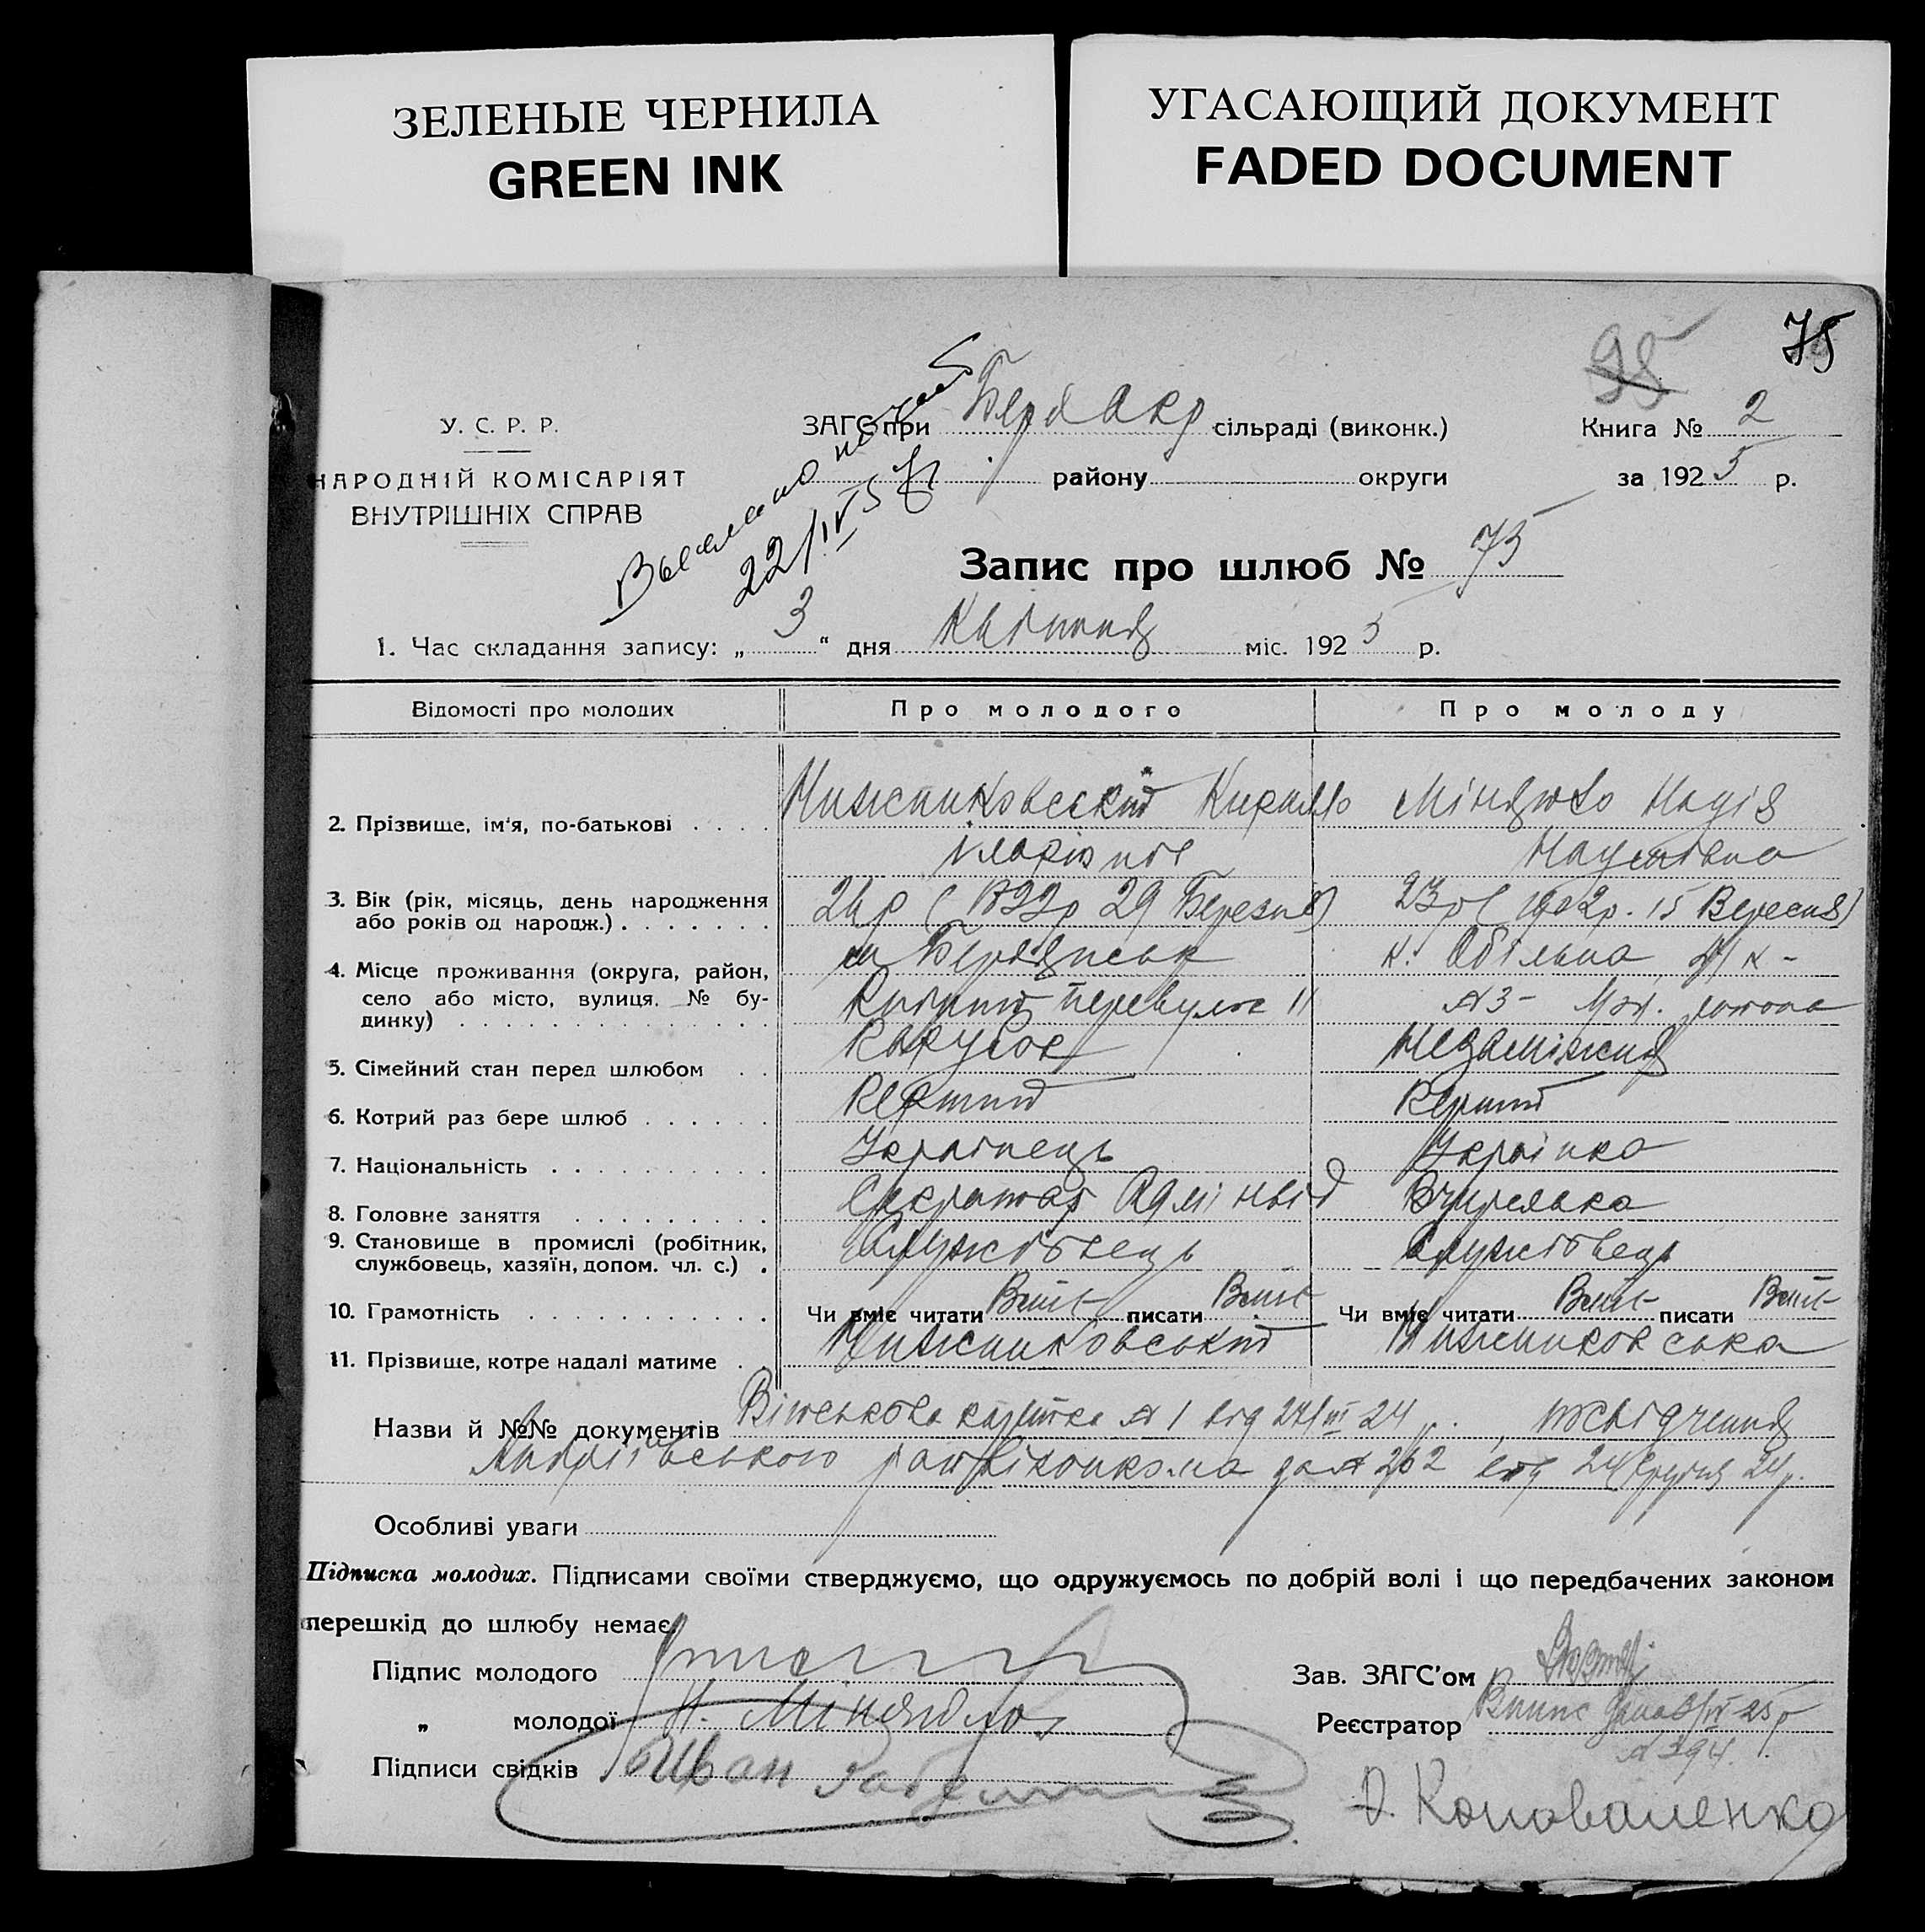 ЗЕЛЕНЫЕ ЧЕРНИЛА
GREEN INK
УГАСАЮЩИЙ ДОКУМЕНТ
FADED DOCUMENT
75
95
У. С. Р. Р.
НАРОДНІЙ КОМІСАРІЯТ
ВНУТРІШНІХ СПРАВ
ЗАГС при Берд Окр сільраді (виконк.)
району округи
Книга № 2
за 1925 р.
22/IV 57
Запис про шлюб № 75
1. Час складання запису: „ 3 “ дня Квітня міс. 1925 р.
Відомості про молодих Про молодого Про молоду
2. Прізвище, ім'я, по-батькові . . . . Нижниковський Кирилло Міндюко Надія
Іларіонов Наумівна
3. Вік (рік, місяць, день народження
або років од народж.) . . . . . . . 29 Березня) 23 р ( 1902р. 15 Вересня)
4. Місце проживання (округа, район,
село або місто, вулиця. № бу-
динку) . . . . . . . . . . . . . . .
м Бердянськ
перевулок 11
к. Обільна
5. Сімейний стан перед шлюбом . . Парубок Незаміжня
6. Котрий раз бере шлюб . . . . . . Перший Перший
7. Національність . . . . . . . . . . Українець Українка
8. Головне заняття . . . . . . . . . Секретар Адмінвід Вчителька
9. Становище в промислі (робітник,
службовець, хазяїн, допом. чл. с.) . Службовець Службовець
10. Грамотність . . . . . . . . . . . . Чи вміє читати Вміє писати Вміє Чи вміє читати Вміє писати Вміє
11. Прізвище, котре надалі матиме . Нижниковський Нижниковська
Назви й №№ документів Військова картка № 1 від 27/III 24 р., посвідчення
Андріївського райвиконкома за № 262 від 24 Грудня 24 р.
Особливі уваги
Підписка молодих. Підписами своїми стверджуємо, що одружуємось по добрій волі і що передбачених законом
перешкід до шлюбу немає
Підпис молодого
Зав. ЗАГС'ом
„ молодої Н. Міндюко
Реєстратор
Випис дана 3/IV-25 р
№ 394.
Підписи свідків Иван
Коноваленко